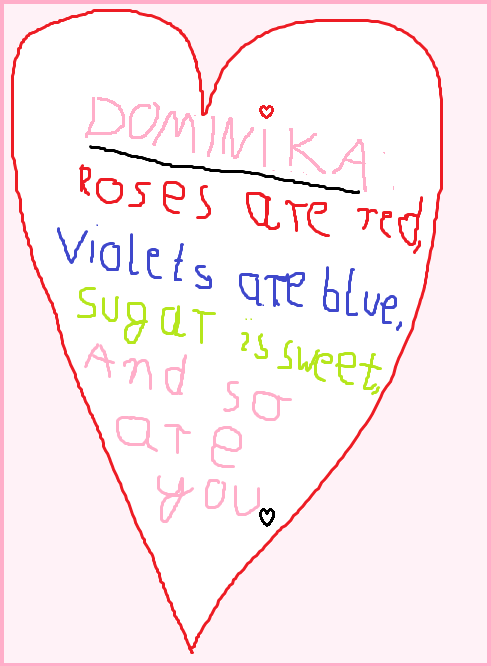 DOMINiKA
Roses are red,
Violets are blue,
Sugar is sweet,
And so
are
you